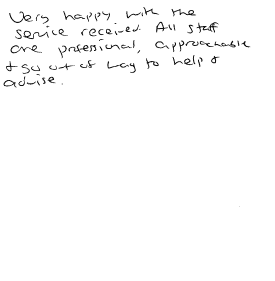 Very happy with the
service received. All staff
are professional, approachable
+ go out of way to help +
advise.